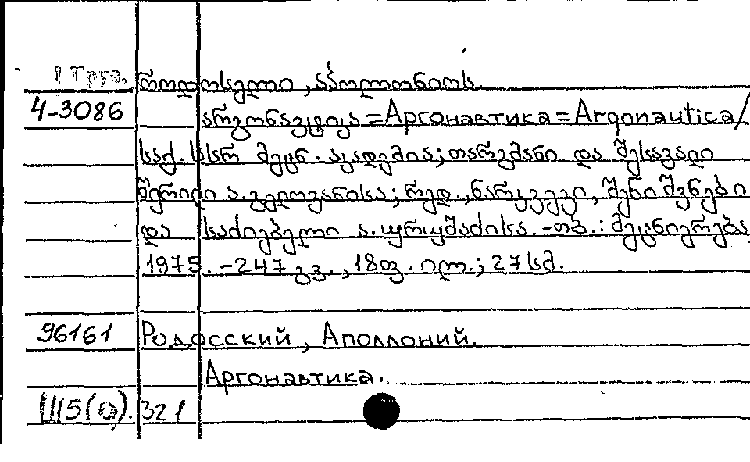 1 Груз. როდოსელი, აპოლონიოს.
4-3086 არგონავტიკა = Аргонавтика = Argonautica/
საქ. სსრ მეცნ. აკადემია; თარგმანი და შესავალი
წერილი ა. გელოვანისა; რედ., ნარკვევი, შენიშვნები
და საძიებელი ა. ურუშაძისა. -თბ.: მეცნიერება
1975. - 247 გვ., 18ფ. ილ.; 27 სმ.
96161 Родосский, Аполлоний.
Аргонавтика.
321